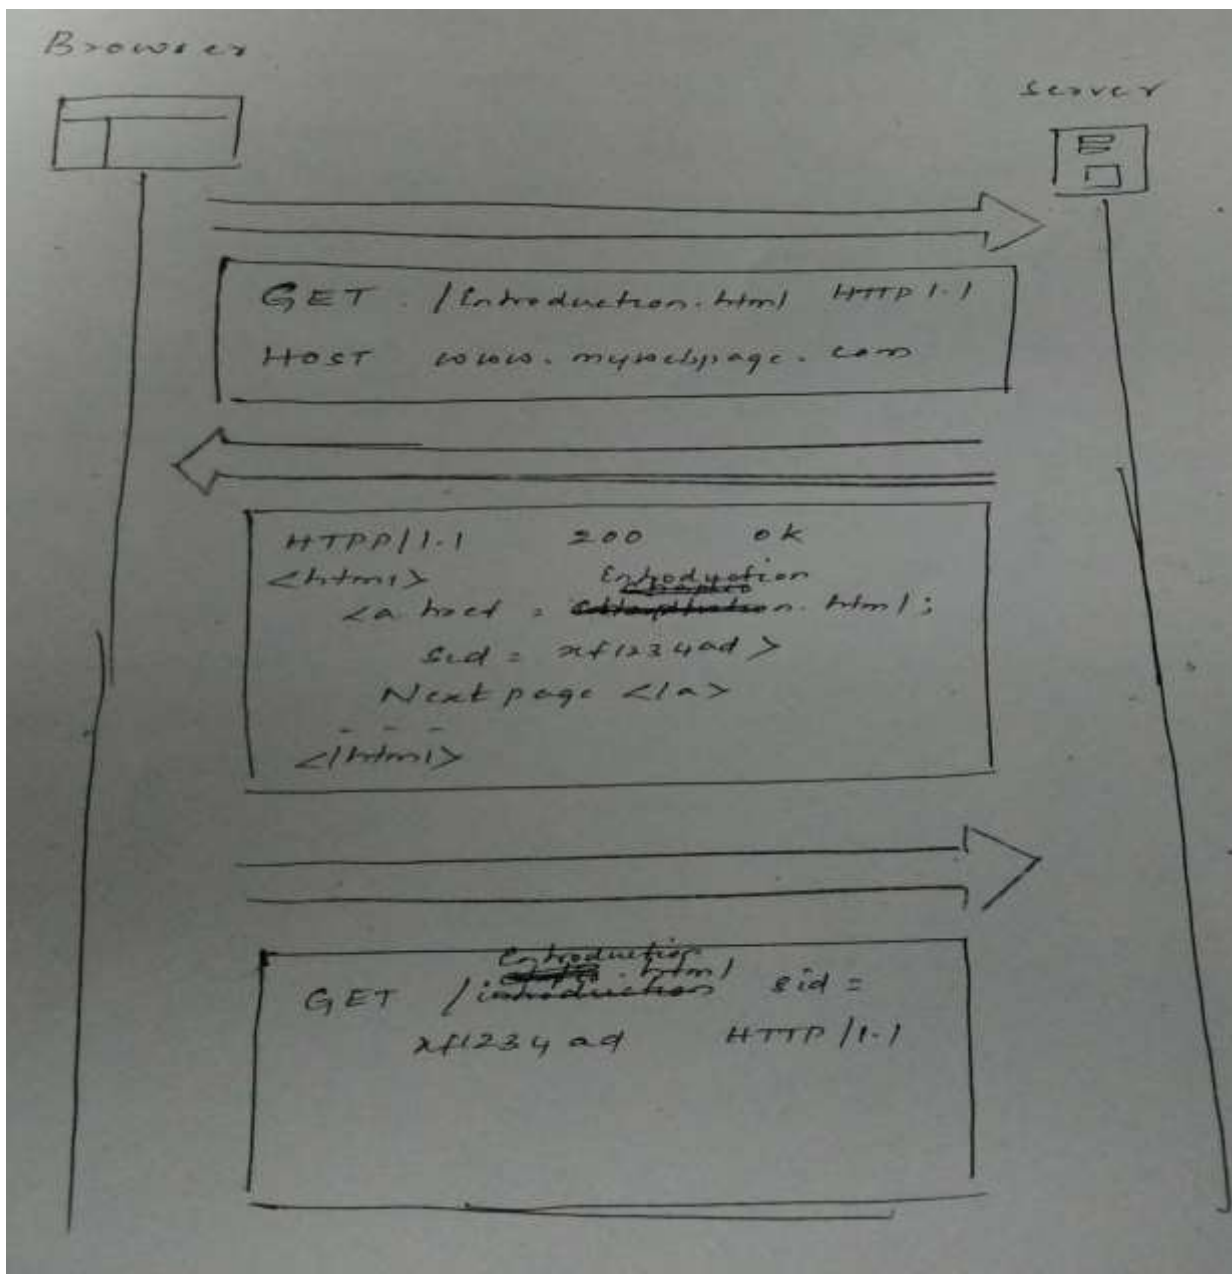 Browser
Server
GET /Introduction.html HTTP 1.1
HOST www.mywebpage.com
HTPP/1.1 200 ok
<html>
Introduction
<a href = .html;
sid = xf1234ad>
Next page </a>
- - -
</html>
Introduction
GET / .html sid =
xf1234ad HTTP/1.1